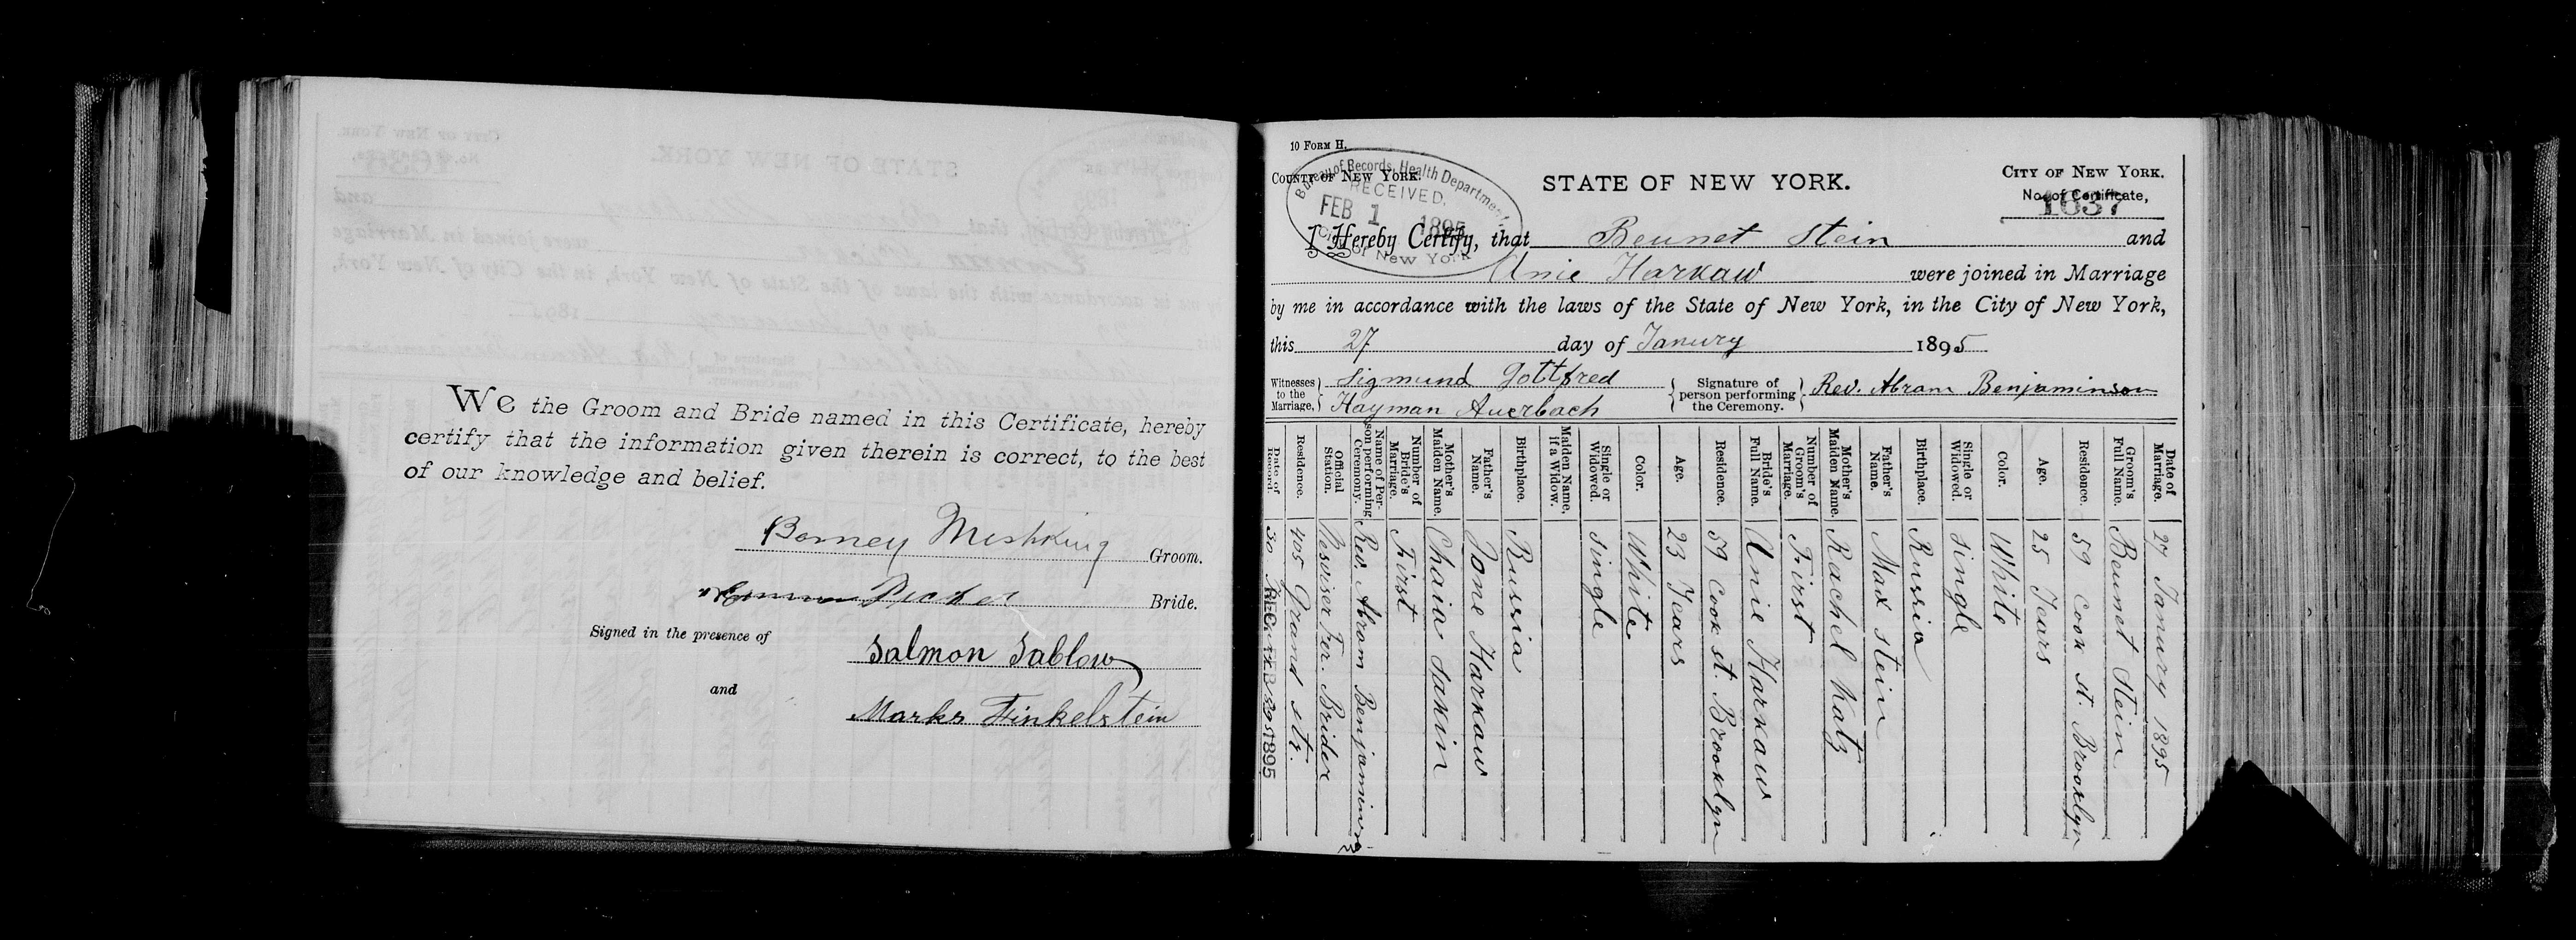 We the Groom and Bride named in this Certificate, hereby
certify that the information given therein is correct, to the best
of our knowledge and belief.
Barney Mishking Groom.
Decker Bride.
Signed in the presence of
Salmon Sablow
and
Marks Finkelstein
10 Form H.
County of New York.
Bureau of Records, Health Department
RECEIVED.
FEB 1 1895
City of New York
STATE OF NEW YORK.
City of New York.
No. of Certificate,
1637
I Hereby Certify, that Beunet Stein and
Anie Harkaw were joined in Marriage
by me in accordance with the laws of the State of New York, in the City of New York,
this 27 day of Janury 1895
Witnesses to the Marriage, Sigmund Gottfred
Hayman Auerbach
Signature of person performing the Ceremony. Rev. Abram Benjaminson
Date of Marriage. 27 Janury 1895
Groom's Full Name. Beunet Stein
Residence. 59 Cook st. Brooklyn
Age. 25 Years
Color. White
Single or Widowed. Single
Birthplace. Russia
Father's Name. Max Stein
Mother's Maiden Name. Rachel Katz
Number of Groom's Marriage. First
Bride's Full Name. Anie Harkaw
Residence. 59 Cook st. Brooklyn
Age. 23 Years
Color. White
Single or Widowed. Single
Maiden Name, if a Widow.
Birthplace. Russia
Father's Name. Jone Harkaw
Mother's Maiden Name. Chaia Sakin
Number of Bride's Marriage. First
Name of Person performing Ceremony. Rev. Abrom Benjaminson
Official Station.
Residence. 405 Grand str.
Date of Record. 30 1895